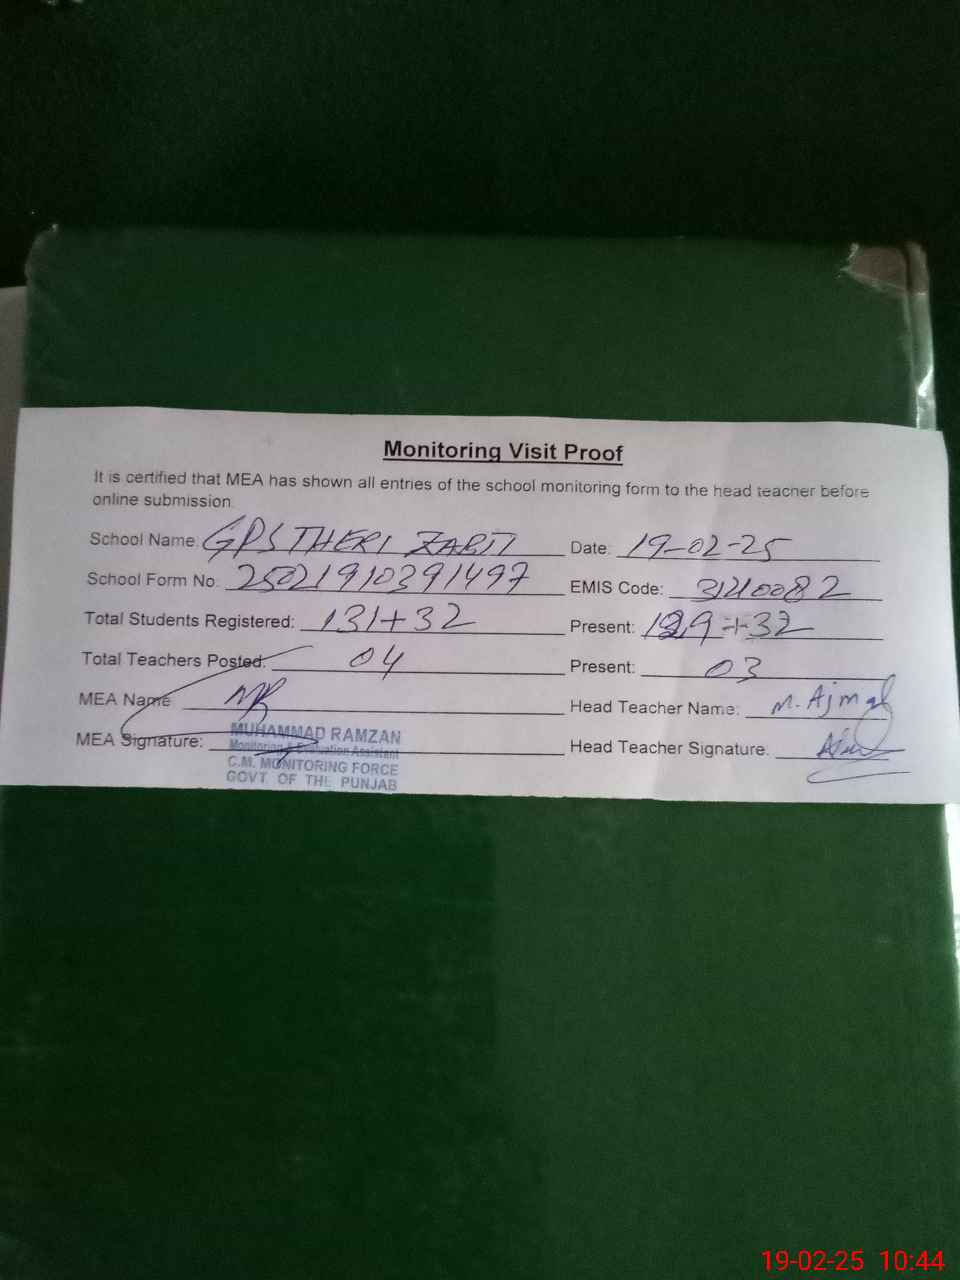 Monitoring Visit Proof
It is certified that MEA has shown all entries of the school monitoring form to the head teacher before
online submission.
School Name: GPS THERI ZABTI Date: 19-02-25
School Form No: 25021910391497 EMIS Code:
Total Students Registered: 131+32 Present: 129+32
Total Teachers Posted: 04 Present: 03
MEA Name MR Head Teacher Name: M. Ajmal
MEA Signature: Head Teacher Signature.
MUHAMMAD RAMZAN
Monitoring & Evaluation Assistant
C.M. MONITORING FORCE
GOVT. OF THE PUNJAB
19-02-25 10:44